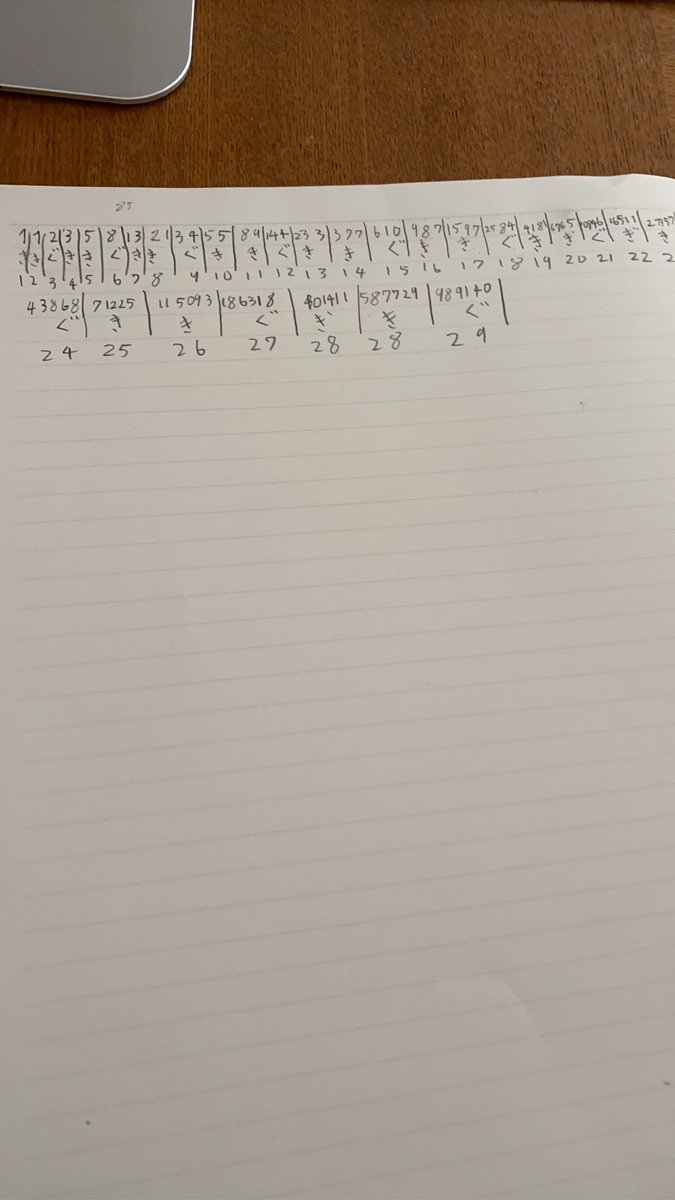 1|1|2|3|5|8|13|21|34|55|89|144|233|377|610|987|1597|2584|4181|6765|10946|16511|27357
き き ぐ き き ぐ き き ぐ き き ぐ き き ぐ き き ぐ き き ぐ き き
1 2 3 4 5 6 7 8 9 10 11 12 13 14 15 16 17 18 19 20 21 22 2
43868|71225|115093|186318|301411|587729|989140|
ぐ き き ぐ き き ぐ
24 25 26 27 28 28 29